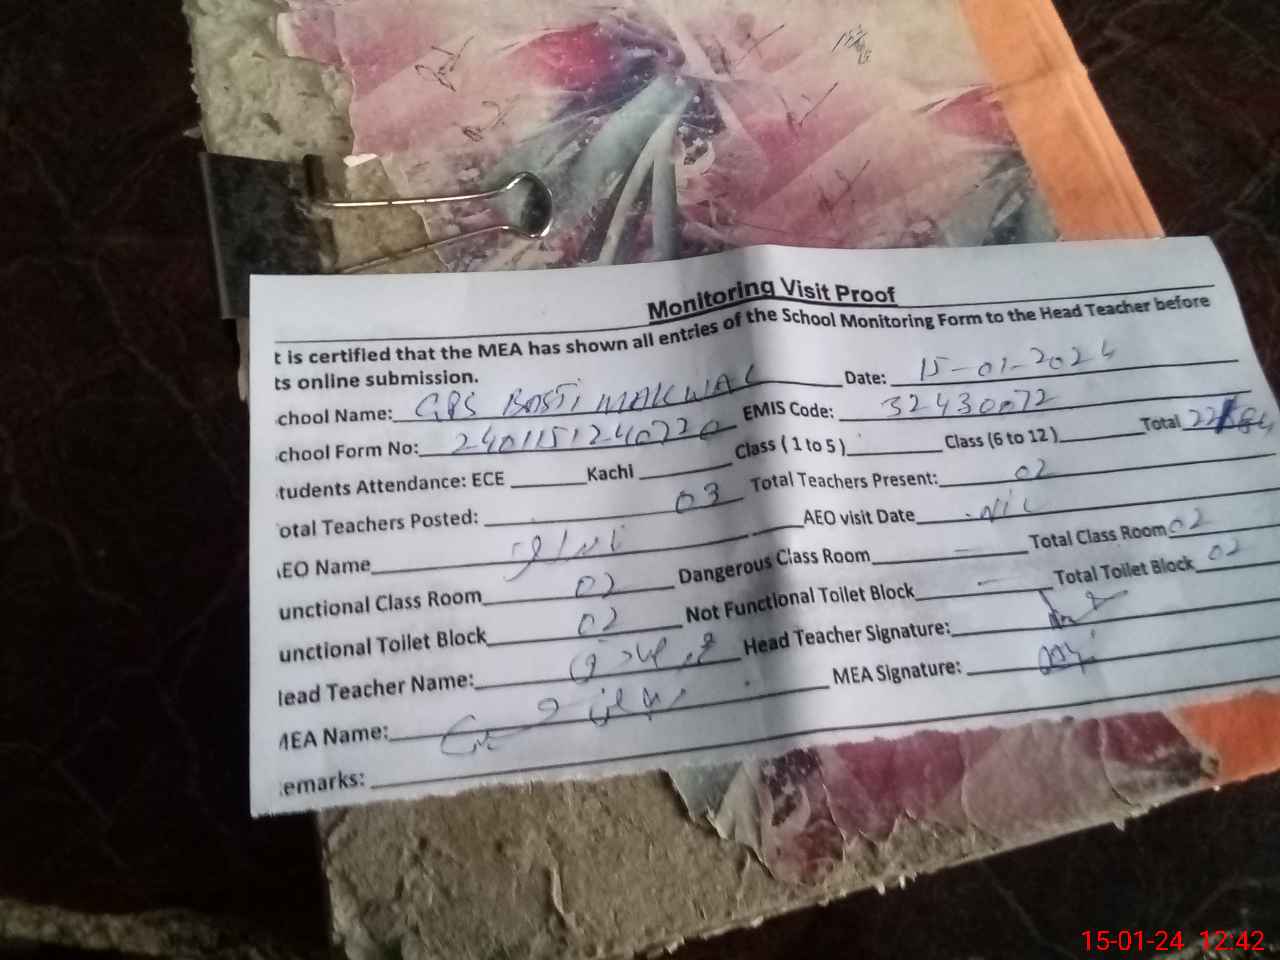 Monitoring Visit Proof
t is certified that the MEA has shown all entries of the School Monitoring Form to the Head Teacher before
ts online submission.
chool Name: GPS BASTI MAKWAL Date: 15-01-2024
chool Form No: 2401151240720 EMIS Code: 32430072
tudents Attendance: ECE Kachi Class ( 1 to 5 ) Class (6 to 12 ) Total
otal Teachers Posted: 03 Total Teachers Present: 02
EO Name AEO visit Date NIL
unctional Class Room 02 Dangerous Class Room — Total Class Room 02
unctional Toilet Block 02 Not Functional Toilet Block — Total Toilet Block 02
lead Teacher Name: Head Teacher Signature:
MEA Name: MEA Signature:
emarks:
15-01-24 12:42